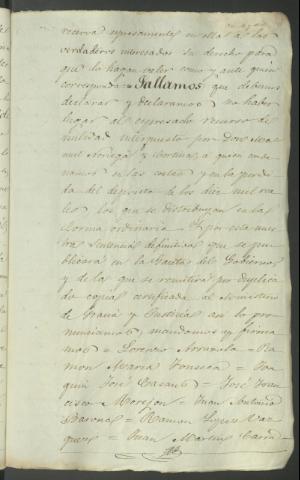 reserva espresamente en ella a los
verdaderos interesados su derecho para
que lo hagan valer como y ante quien
corresponda = Fallamos que debemos
declarar y declaramos no haber
lugar al espresado recurso de
nulidad interpuesto por Don Ma
nuel Noriega y Cortina, a quien conde
namos en las costas y en la perdi
da del deposito de los diez mil rea
les los que se distribuyan en la
forma ordinaria = Y por esta nues
tra sentencia definitiva que se pu
blicará en la Gaceta del Gobierno
y de la que se remitirá por duplica
do copia certificada al Ministerio
de Gracia y Justicia asi lo pro
nunciamos, mandamos y firma
mos = Lorenzo Arrazola = Ra
mon Maria Fonseca = Joa
quin José Casaus = José Fran
cisco Morejon = Juan Antonio
Barona = Ramon Lopez Vaz
quez = Juan Martin Carra